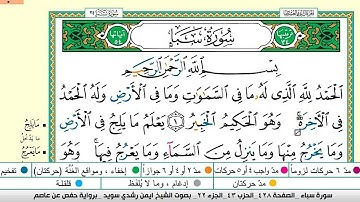 سُورَةُ سَبَإٍ
بِسْمِ اللَّهِ الرَّحْمَٰنِ الرَّحِيمِ
الْحَمْدُ لِلَّهِ الَّذِي لَهُ مَا فِي السَّمَاوَاتِ وَمَا فِي الْأَرْضِ وَلَهُ الْحَمْدُ
فِي الْآخِرَةِ ۚ وَهُوَ الْحَكِيمُ الْخَبِيرُ ١ يَعْلَمُ مَا يَلِجُ فِي الْأَرْضِ
وَمَا يَخْرُجُ مِنْهَا وَمَا يَنزِلُ مِنَ السَّمَاءِ وَمَا يَعْرُجُ فِيهَا ۚ وَهُوَ
مَا يَلِجُ
مَا يَعْرُجُ
مدّ ٦ حركات لزوماً مدّ واجب ٤ أو ٥ حركات مدّ ٢ أو ٤ أو ٦ جوازاً إخفاء ، ومواقع الغنّة (حركتان) تفخيم
مدّ حركتان إدغام ، وما لا يُلفَظ قلقلة
سورة سباء . الصفحة ٤٢٨ . الحزب ٤٣ . الجزء ٢٢ . بصوت الشيخ ايمن رشدي سويد . برواية حفص عن عاصم